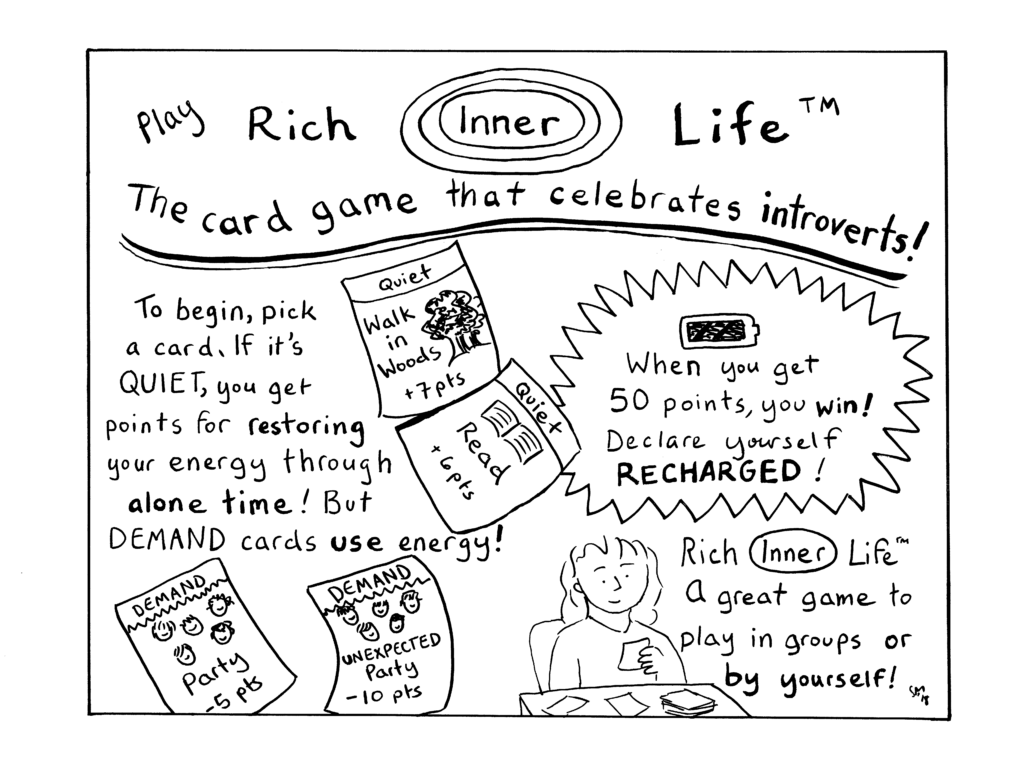 Play Rich Inner Life™
The card game that celebrates introverts!
To begin, pick
a card. If it's
QUIET, you get
points for restoring
your energy through
alone time! But
DEMAND cards use energy!
Quiet
Walk
in
Woods
+7pts
Quiet
Read
+6pts
When you get
50 points, you win!
Declare yourself
RECHARGED!
DEMAND
Party
-5 pts
DEMAND
UNEXPECTED
Party
-10 pts
Rich Inner Life™
A great game to
play in groups or
by yourself!